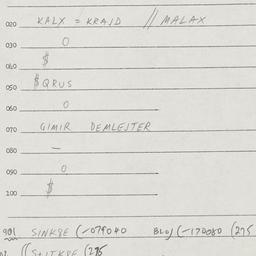 020 KALX = KRAID // MALAX
030 0
040 $
$QRUS
050
060 0
070 GIMIR DEMLEJTER
080 —
090 0
100 $
901 SINK8E (-079040 BLOJ (-170080 (275